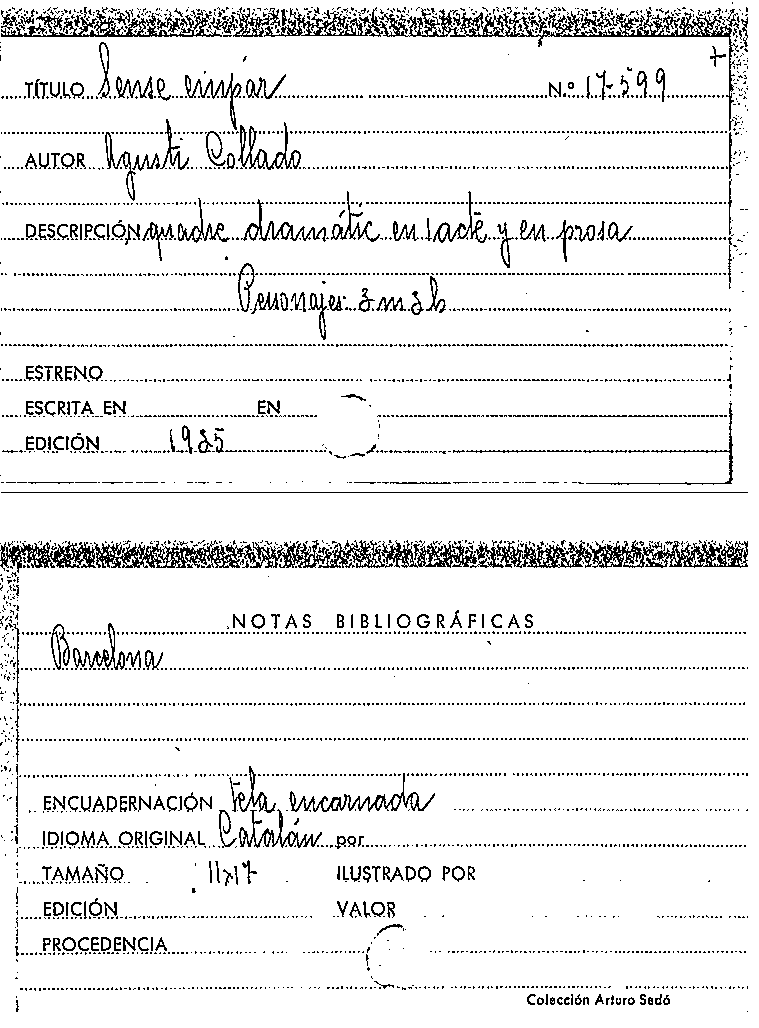 +
TÍTULO Sense empar N.º 17-599
AUTOR Agustí Collado
DESCRIPCIÓN quadre dramátic en 1 acte y en prosa
Personajes 3 m 3 h
ESTRENO
ESCRITA EN EN
EDICIÓN 1935
NOTAS BIBLIOGRÁFICAS
Barcelona
ENCUADERNACIÓN tela encarnada
IDIOMA ORIGINAL Catalán por
TAMAÑO 11x17 ILUSTRADO POR
EDICIÓN VALOR
PROCEDENCIA
Colección Arturo Sedó